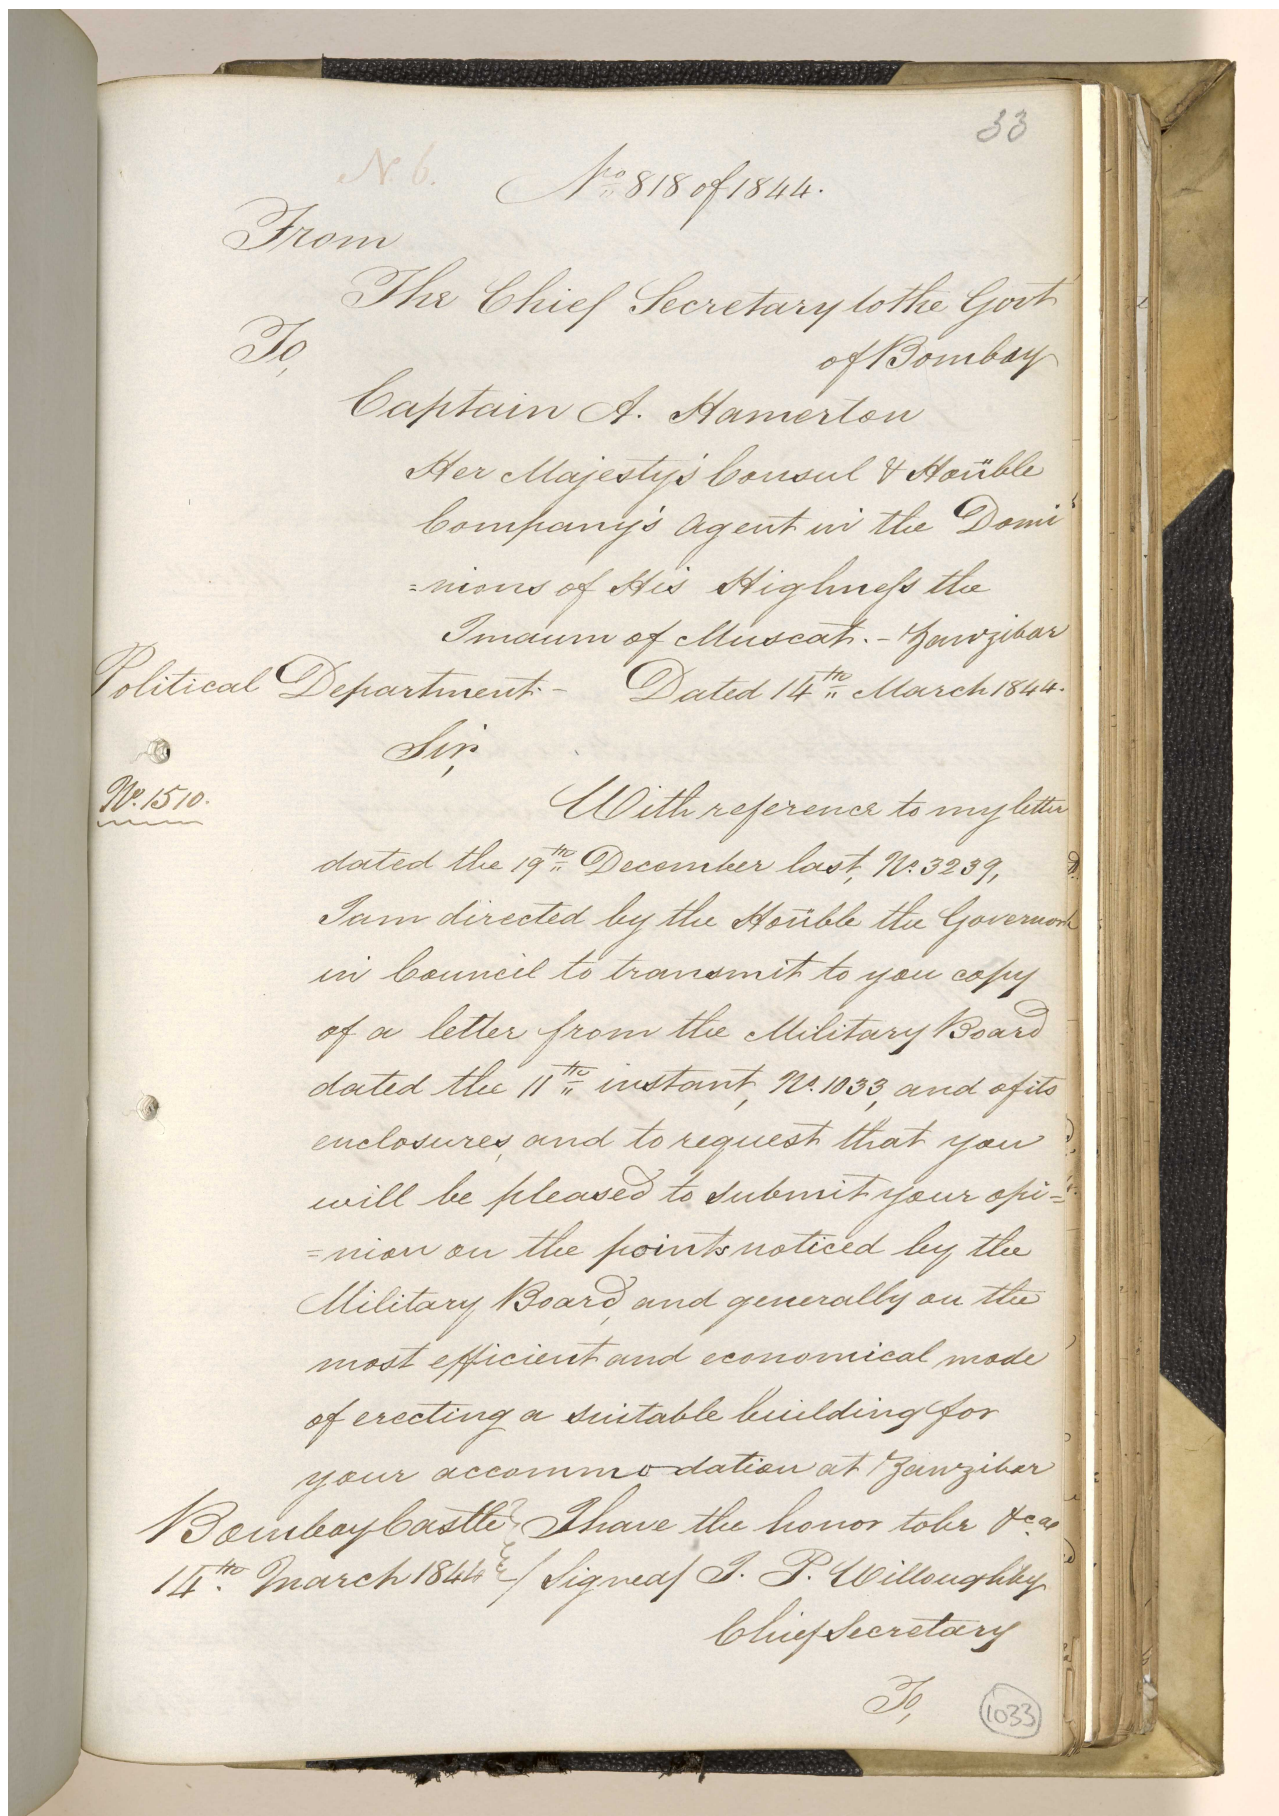 33
N. 6.
No 818 of 1844.
From
The Chief Secretary to the Govt
of Bombay
To,
Captain A. Hamerton
Her Majesty's Consul & Honble
Company's Agent in the Domi
=nions of His Highness the
Imaum of Muscat. - Zanzibar
Political Department - Dated 14th March 1844.
Sir,
No. 1510.
With reference to my letter
dated the 19th December last, No. 3239,
I am directed by the Honble the Governor
in Council to transmit to you copy
of a letter from the Military Board
dated the 11th instant, No. 1033, and of its
enclosures, and to request that you
will be pleased to submit your opi=
=nion on the points noticed by the
Military Board, and generally on the
most efficient and economical mode
of erecting a suitable building for
your accommodation at Zanzibar
Bombay Castle I have the honor to be &ca
14th March 1844 / Signed / J. P. Willoughby
Chief Secretary
To,
1033